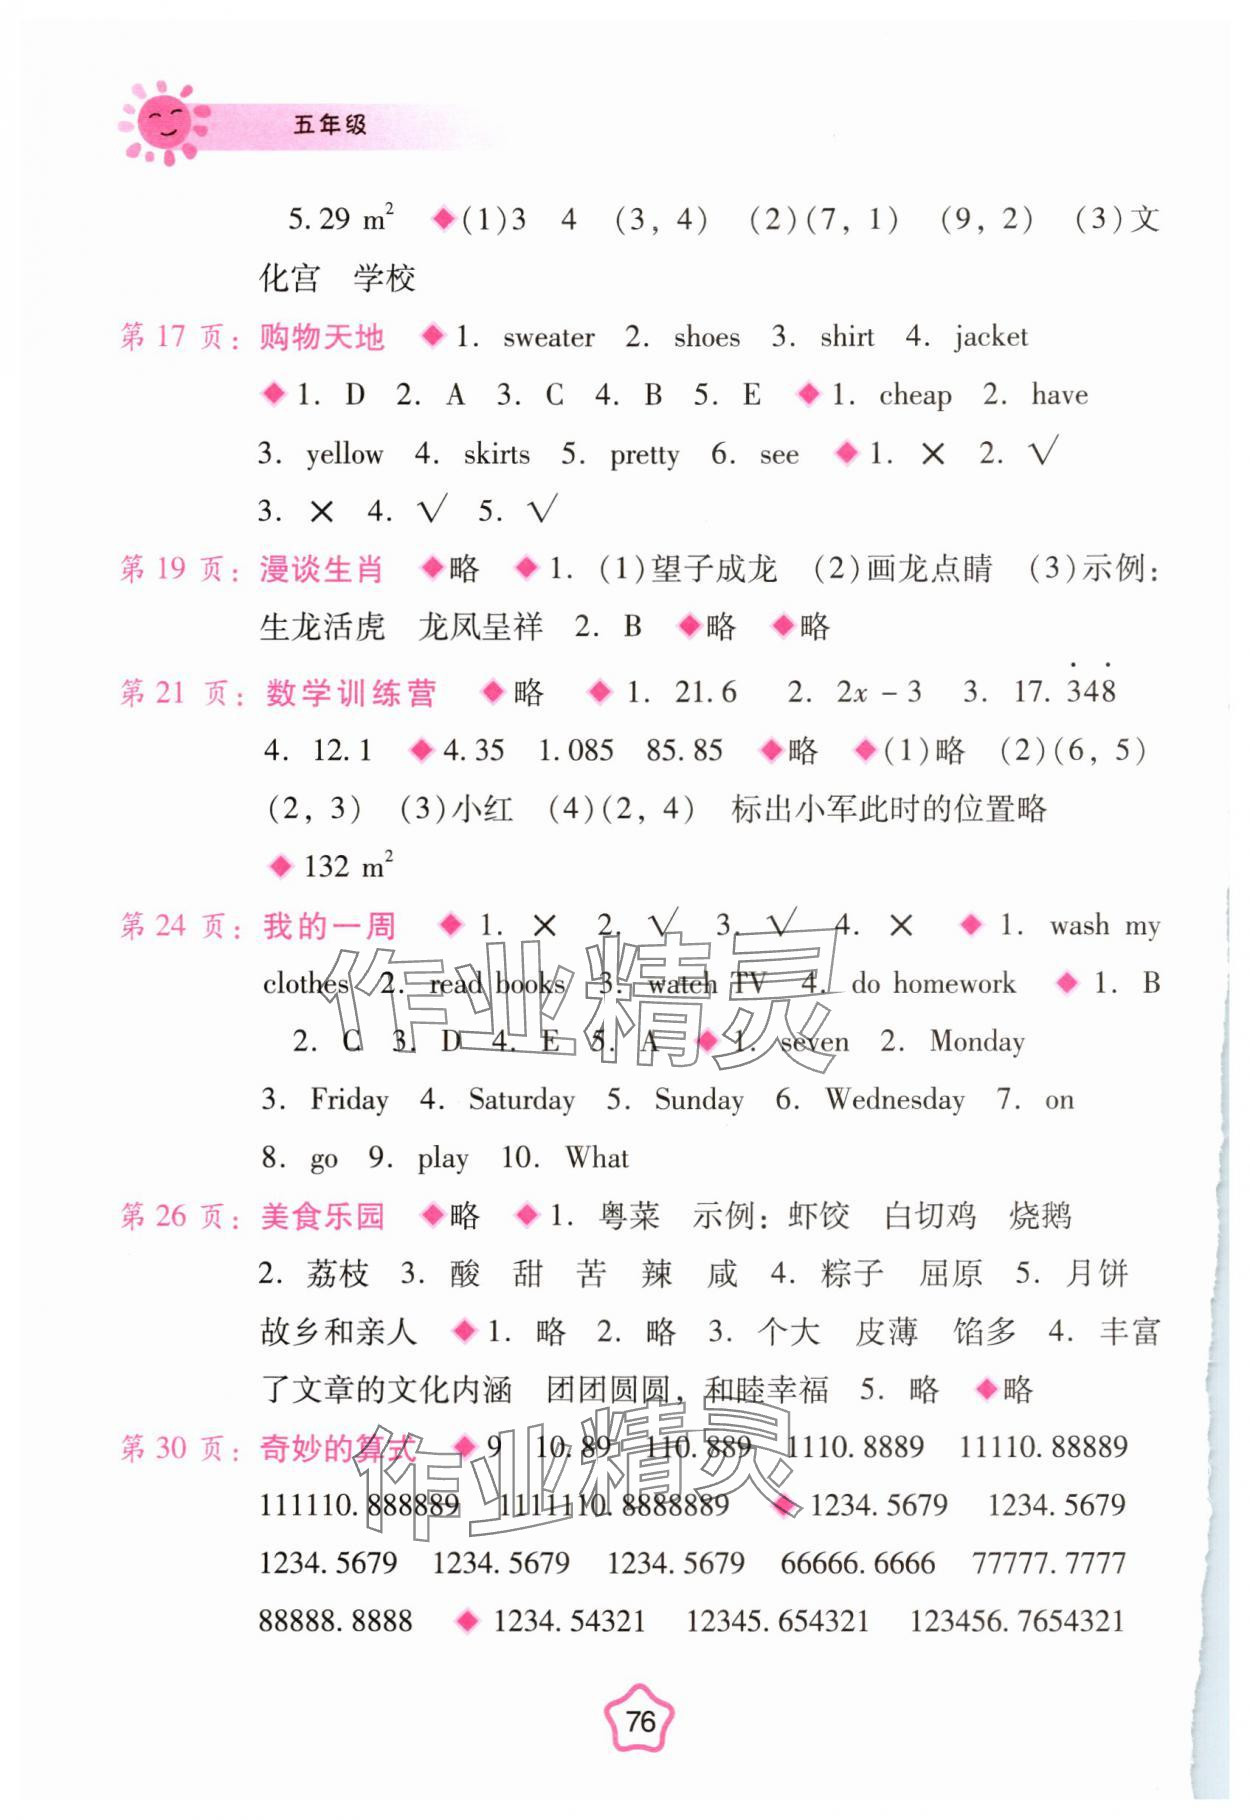 五年级
5. 29 m² ◆(1)3 4 (3, 4) (2)(7, 1) (9, 2) (3)文
化宫 学校
第 17 页: 购物天地 ◆ 1. sweater 2. shoes 3. shirt 4. jacket
◆ 1. D 2. A 3. C 4. B 5. E ◆ 1. cheap 2. have
3. yellow 4. skirts 5. pretty 6. see ◆ 1. × 2. √
3. × 4. √ 5. √
第 19 页: 漫谈生肖 ◆略 ◆ 1. (1)望子成龙 (2)画龙点睛 (3)示例:
生龙活虎 龙凤呈祥 2. B ◆略 ◆略
第 21 页: 数学训练营 ◆略 ◆ 1. 21.6 2. 2x－3 3. 17.3̇48̇
4. 12.1 ◆4.35 1.085 85.85 ◆略 ◆(1)略 (2)(6, 5)
(2, 3) (3)小红 (4)(2, 4) 标出小军此时的位置略
◆ 132 m²
第 24 页: 我的一周 ◆ 1. × 2. √ 3. √ 4. × ◆ 1. wash my
clothes 2. read books 3. watch TV 4. do homework ◆ 1. B
2. C 3. D 4. E 5. A ◆ 1. seven 2. Monday
3. Friday 4. Saturday 5. Sunday 6. Wednesday 7. on
8. go 9. play 10. What
第 26 页: 美食乐园 ◆略 ◆ 1. 粤菜 示例: 虾饺 白切鸡 烧鹅
2. 荔枝 3. 酸 甜 苦 辣 咸 4. 粽子 屈原 5. 月饼
故乡和亲人 ◆ 1. 略 2. 略 3. 个大 皮薄 馅多 4. 丰富
了文章的文化内涵 团团圆圆, 和睦幸福 5. 略 ◆略
第 30 页: 奇妙的算式 ◆ 9 10.89 110.889 1110.8889 11110.88889
111110.888889 1111110.8888889 ◆ 1234.5679 1234.5679
1234.5679 1234.5679 1234.5679 66666.6666 77777.7777
88888.8888 ◆ 1234.54321 12345.654321 123456.7654321
76
作业精灵
作业精灵